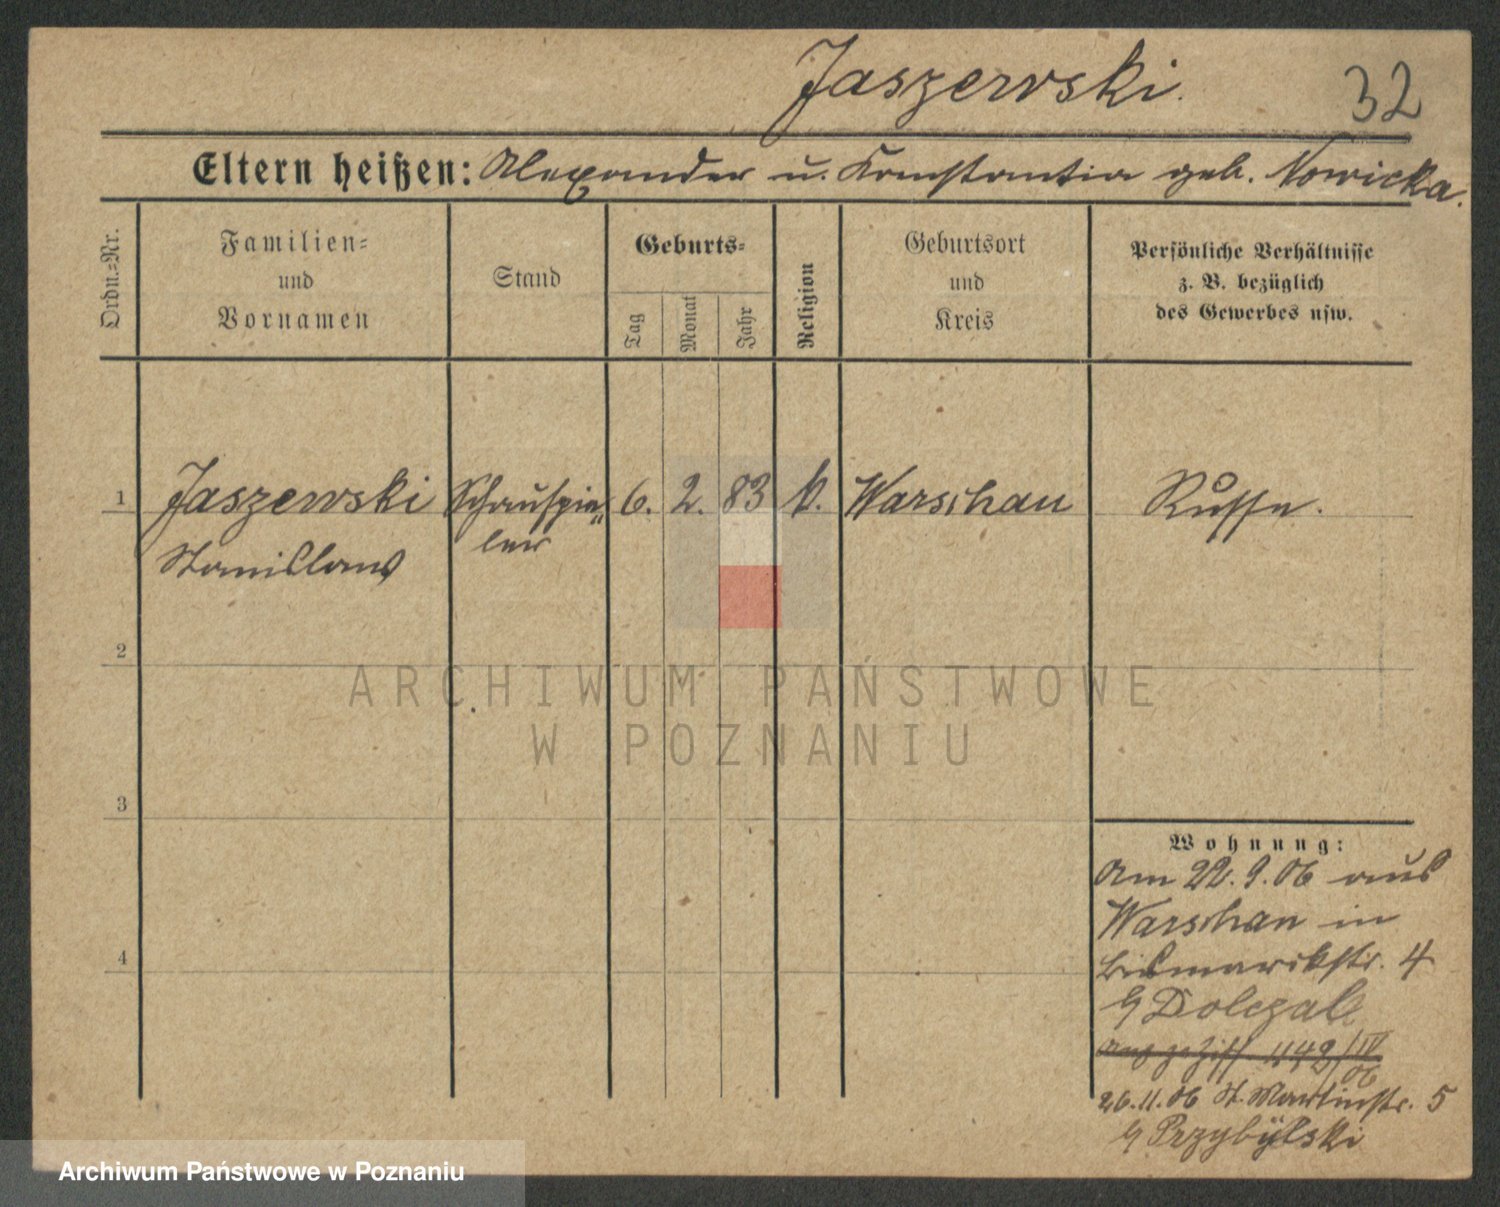 Jaszewski.
32
Eltern heißen: Alexander u. Konstantia geb. Nowicka.
Ordn.=Nr.
Familien=
und
Vornamen
Stand
Geburts=
Tag
Monat
Jahr
Religion
Geburtsort
und
Kreis
Persönliche Verhältnisse
z. B. bezüglich
des Gewerbes usw.
1 Jaszewski Schauspie= 6. 2. 83 k. Warschau Russe.
Stanislaus ler
2
ARCHIWUM PAŃSTWOWE
W POZNANIU
3
Wohnung:
Am 22.9.06 aus
Warschau in
4
Bismarckstr. 4
b/ Dolczal
442/IV 06
26.11.06 St. Martinstr. 5
b/ Przybylski
Archiwum Państwowe w Poznaniu